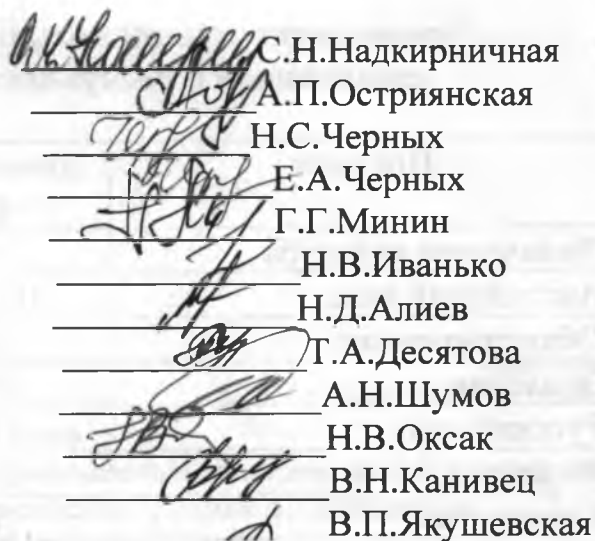 С.Н.Надкирничная
А.П.Остриянская
Н.С.Черных
Е.А.Черных
Г.Г.Минин
Н.В.Иванько
Н.Д.Алиев
Т.А.Десятова
А.Н.Шумов
Н.В.Оксак
В.Н.Канивец
В.П.Якушевская